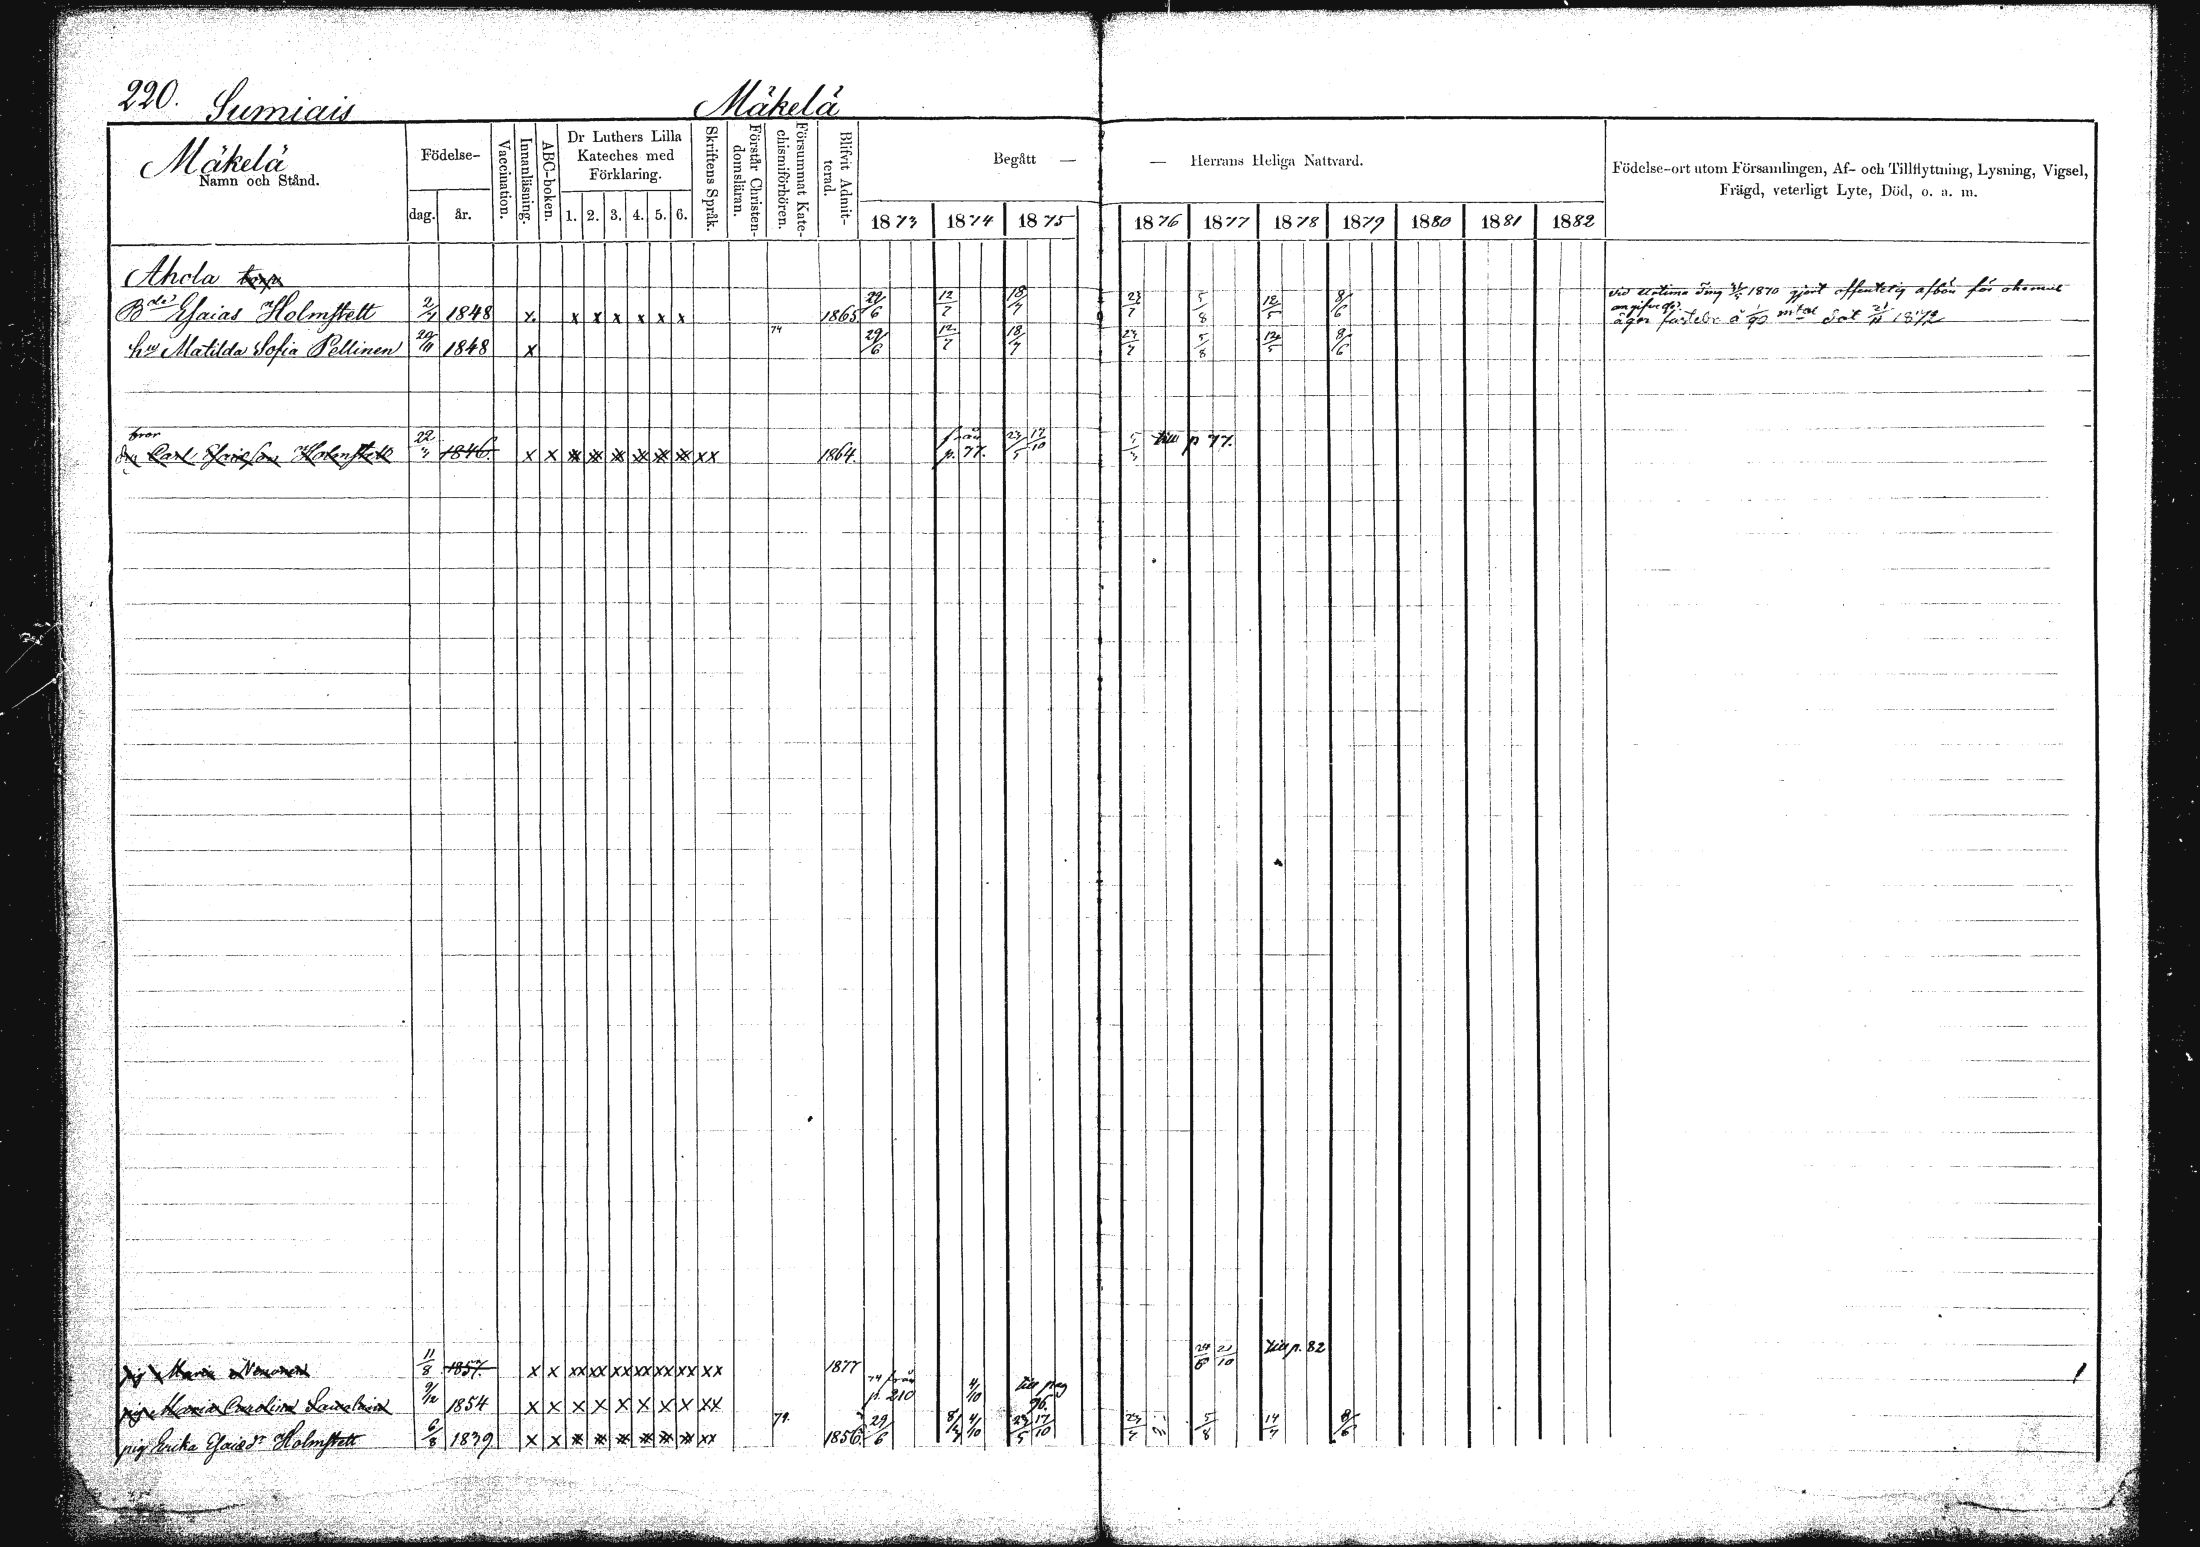 220. Sumiais Mäkelä
Mäkelä
Namn och Stånd.
Födelse-
dag. år.
Vaccination.
Innanläsning.
ABC-boken.
Dr Luthers Lilla
Kateches med
Förklaring.
1. 2. 3. 4. 5. 6.
Skriftens Språk.
Förstår Christen-
domsläran.
Försummat Kate-
chismiförhören.
Blifvit Admit-
terad.
Begått —
— Herrans Heliga Nattvard.
1873 1874 1875 1876 1877 1878 1879 1880 1881 1882
Födelse-ort utom Församlingen, Af- och Tillflyttning, Lysning, Vigsel,
Frägd, veterligt Lyte, Död, o. a. m.
Ahola torp
Esaias Holmstett 2/4 1848 x x x x x x x 1865 29/6 12/7 18/7 23/7 5/8 12/5 8/6
1870 gjort offentelig afbön för
äger fastebr å 1/90 mtal dat 1872
74
hu Matilda Sofia Pellinen 29/11 1848 x 29/6 12/7 18/7 23/7 5/8 12/5 8/6
bror
Carl Esaiasson Holmstett 22/3 1846. x x xx xx xx xx xx xx xx 1864. från p. 77. 23/5 17/10 till p 77.
pig Maria Nenonen 11/8 1857. x x xx xx xx xx xx xx xx 1877 21/10 till p. 82
pig Maria Carolina 9/12 1854 x x x x x x x x xx 74 från p. 210 4/10 till pag 96.
pig Erika Esaiasdr Holmstett 6/8 1839 x x xx xx xx xx xx xx xx 79. 1856. 29/6 4/10 23/5 17/10 23/7 5/8 14/7 8/6